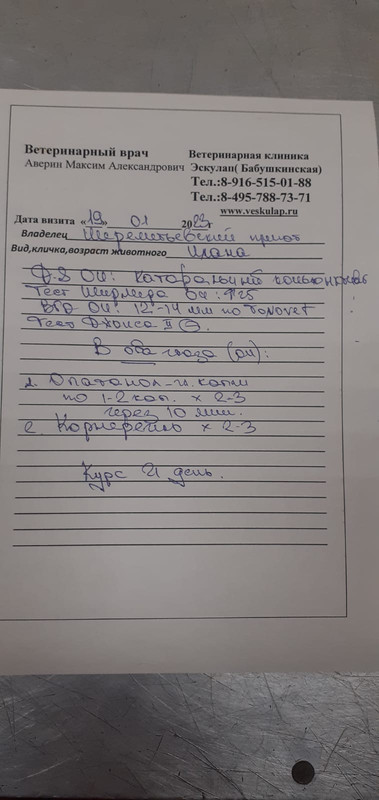 Ветеринарный врач
Аверин Максим Александрович
Ветеринарная клиника
Эскулап( Бабушкинская)
Тел.:8-916-515-01-88
Тел.:8-495-788-73-71
www.veskulap.ru
Дата визита «19» 01 2022г
Владелец Шереметьевский приют
Вид,кличка,возраст животного Илана
Д-з ОИ: катаральный конъюнктивит
Тест Ширмера ОИ: ↑25
ВГД ОИ: 12-14 мм по Tonovet
Тест Джонса II ⊖.
В оба глаза (ои):
1. Опатанол - гл. капли
по 1-2 кап. х 2-3
через 10 мин.
2. Корнерегель х 2-3
Курс 21 день.